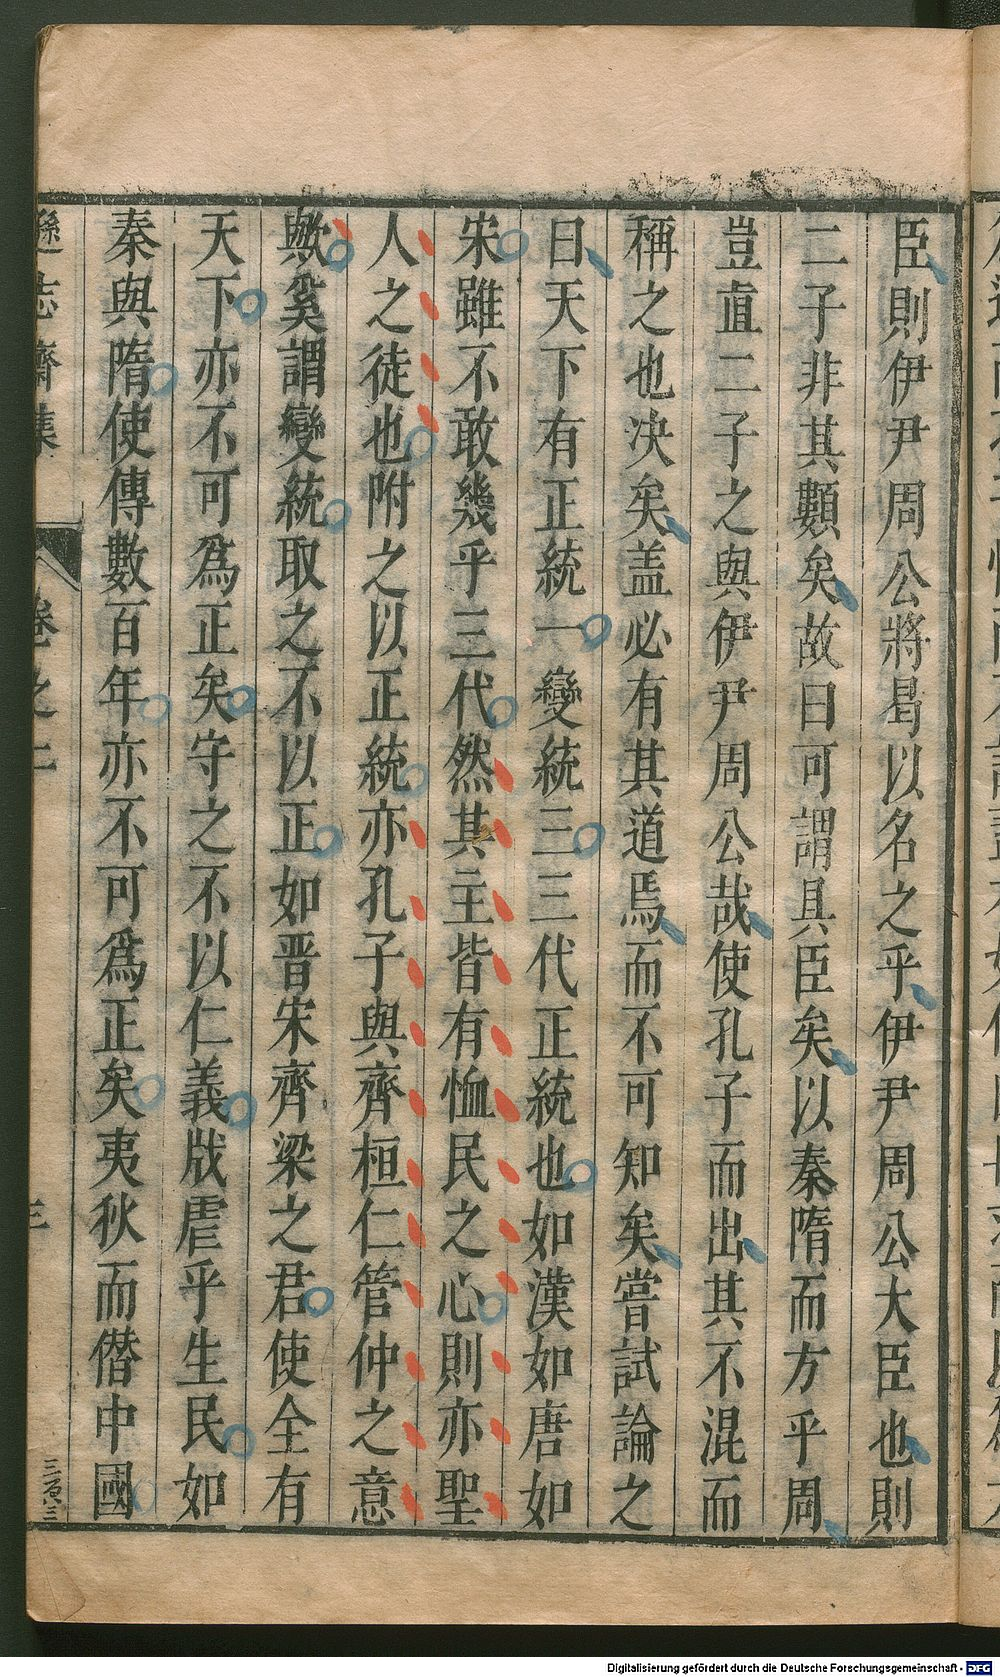 臣則伊尹周公將曷以名之乎伊尹周公大臣也則
二子非其類矣故曰可謂具臣矣以秦隋而方乎周
豈直二子之與伊尹周公哉使孔子而出其不混而
稱之也决矣盖必有其道焉而不可知矣嘗試論之
曰天下有正統一變統三三代正統也如漢如唐如
宋雖不敢幾乎三代然其主皆有恤民之心則亦聖
人之徒也附之以正統亦孔子與齊桓仁管仲之意
歟奚謂變統取之不以正如晋宋齊梁之君使全有
天下亦不可爲正矣守之不以仁義戕虐乎生民如
秦與隋使傳數百年亦不可爲正矣夷狄而僭中國
遜志齋集
卷之二
三
三百八三
Digitalisierung gefördert durch die Deutsche Forschungsgemeinschaft - DFG